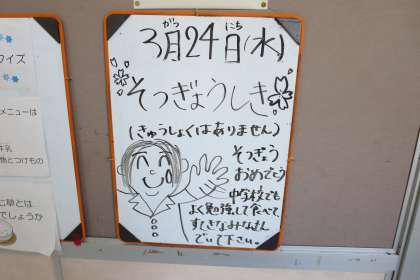 イズ
メニューは
牛乳
物とつけもの
草とは
でしょうか
がつ にち
3月24日(水)
そつぎょうしき
(きゅうしょくはありません)
そつぎょう
おめでとう
中学校でも
よく勉強して食べて
すてきなみなさん
でいて下さい。